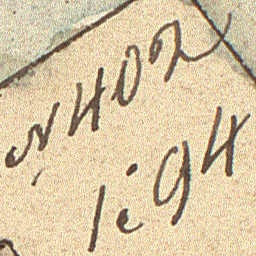 N402
1:94